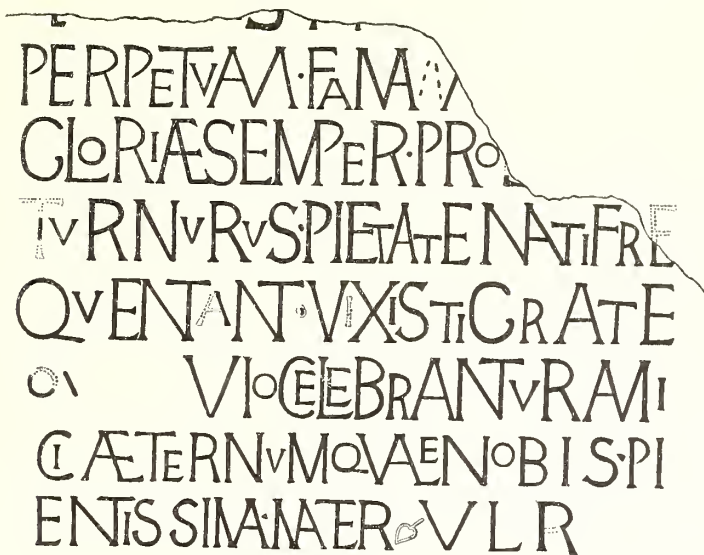 PERPETVAM·FAMA
GLORIÆSEMPER·PRO
TVRNVRVS·PIETATE NATIFRE
QVENTANT·VIXISTIGRATE
VIOCELEBRANTVRAMI
CI ÆTERNVMQVAENOBIS·PI
ENTISSIMA·MATER VLR